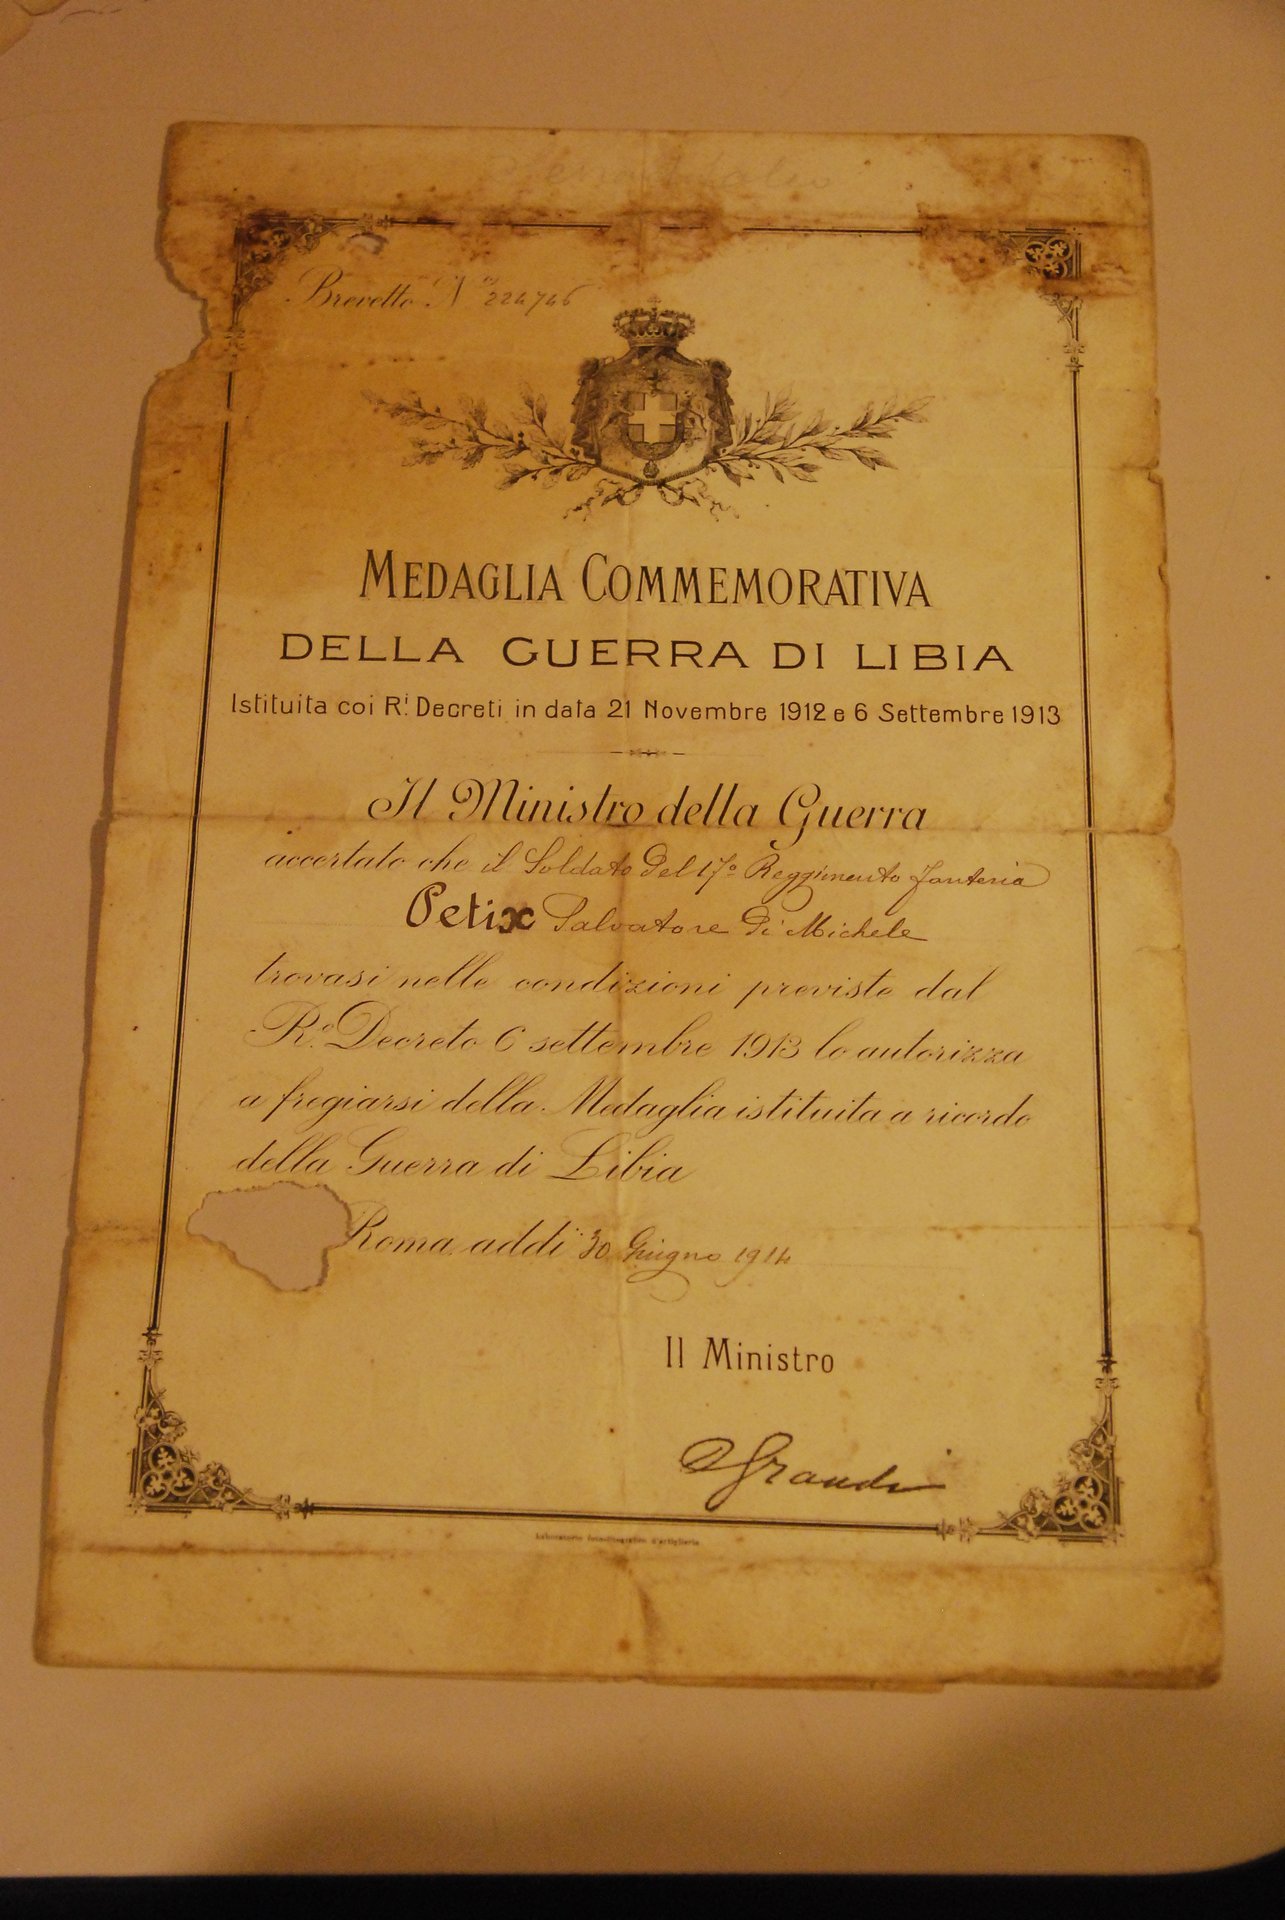 Brevetto N° 224746
MEDAGLIA COMMEMORATIVA
DELLA GUERRA DI LIBIA
Istituita coi R.i Decreti in data 21 Novembre 1912 e 6 Settembre 1913
Il Ministro della Guerra
accertato che il Soldato del 17° Reggimento fanteria
Petix Salvatore di Michele
trovasi nelle condizioni previste dal
R.° Decreto 6 settembre 1913 lo autorizza
a fregiarsi della Medaglia istituita a ricordo
della Guerra di Libia
Roma, addì 30 Giugno 1914
Il Ministro
D Grandi
Laboratorio fotolitografico d'artiglieria